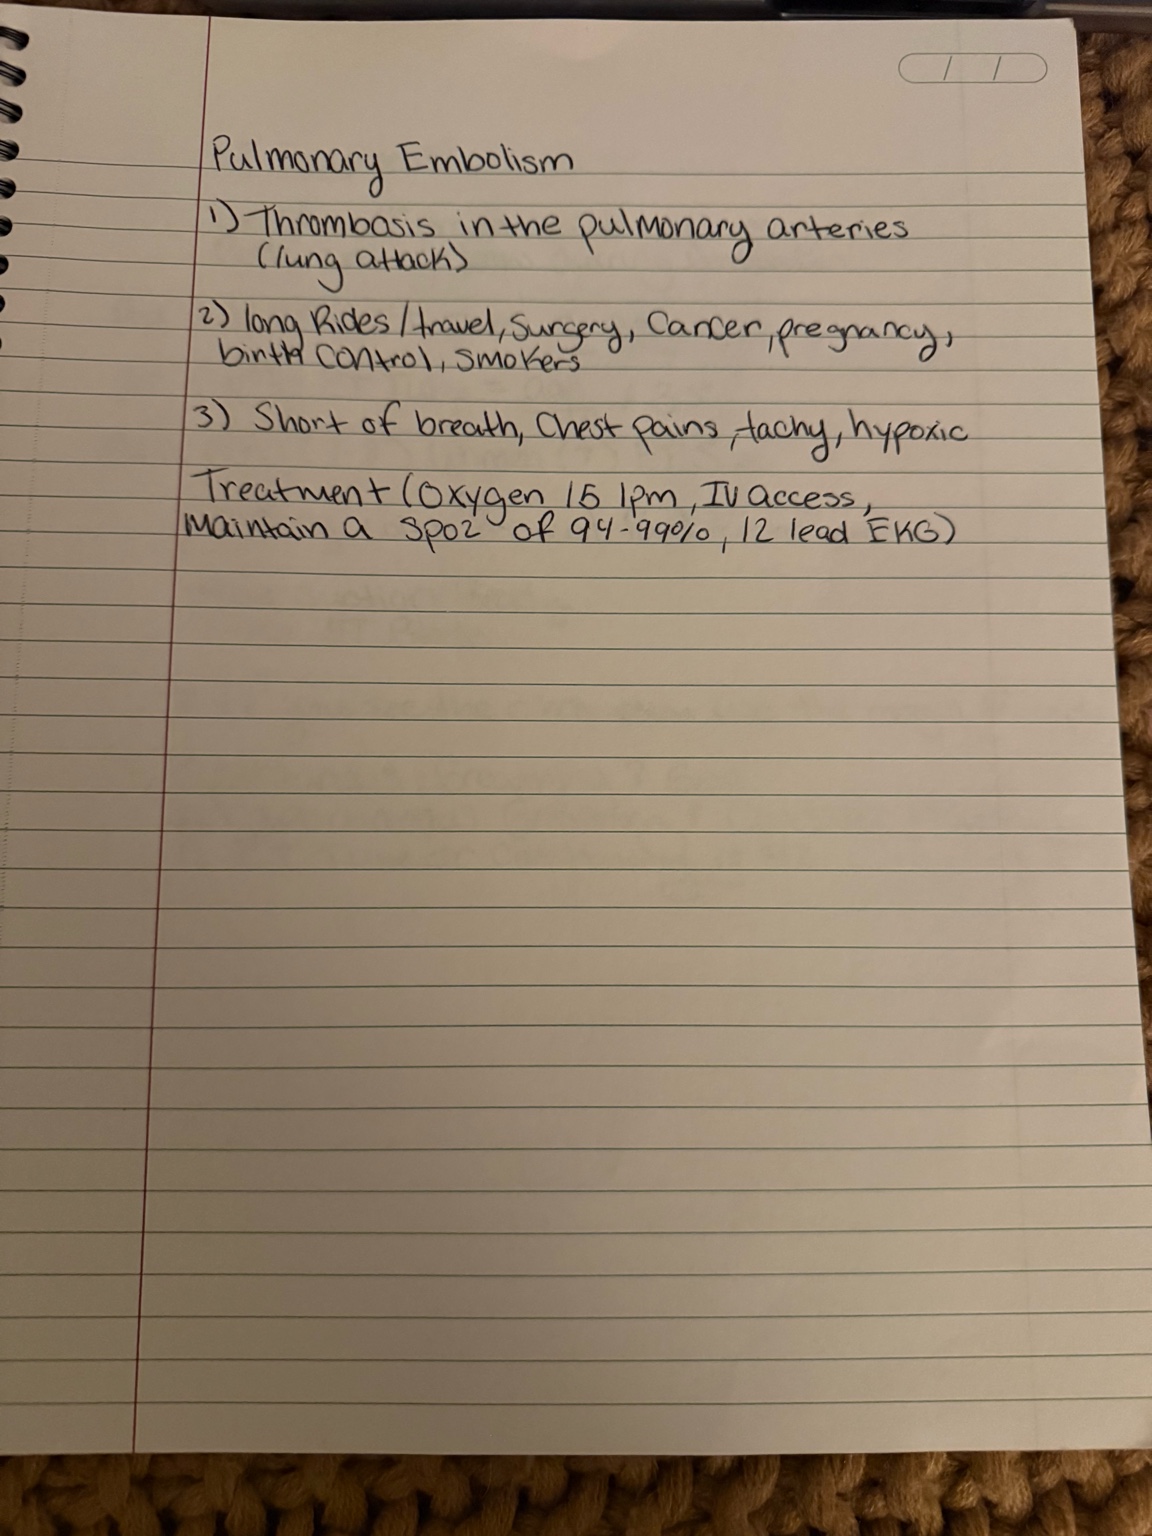 Pulmonary Embolism
1) Thrombasis in the pulmonary arteries
(lung attack)
2) long Rides/travel, Surgery, Cancer, pregnancy,
birth control, smokers
3) Short of breath, Chest pains, tachy, hypoxic
Treatment (Oxygen 15 lpm, IV access,
Maintain a Spo2 of 94-99%, 12 lead EKG)